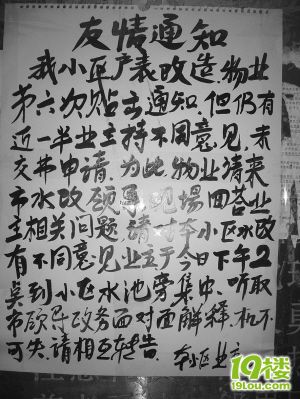 友情通知
我小区户表改造,物业
第六次贴出通知,但仍有
近一半业主持不同意见,未
交书申请,为此,物业请来
市水改领导现场回答业
主相关问题,请对本小区水改
有不同意见业主于今日下午2
点到小区水池旁集中,听取
市领导政务面对面解释,机不
可失,请相互转告.
本小区业
19楼
19lou.com